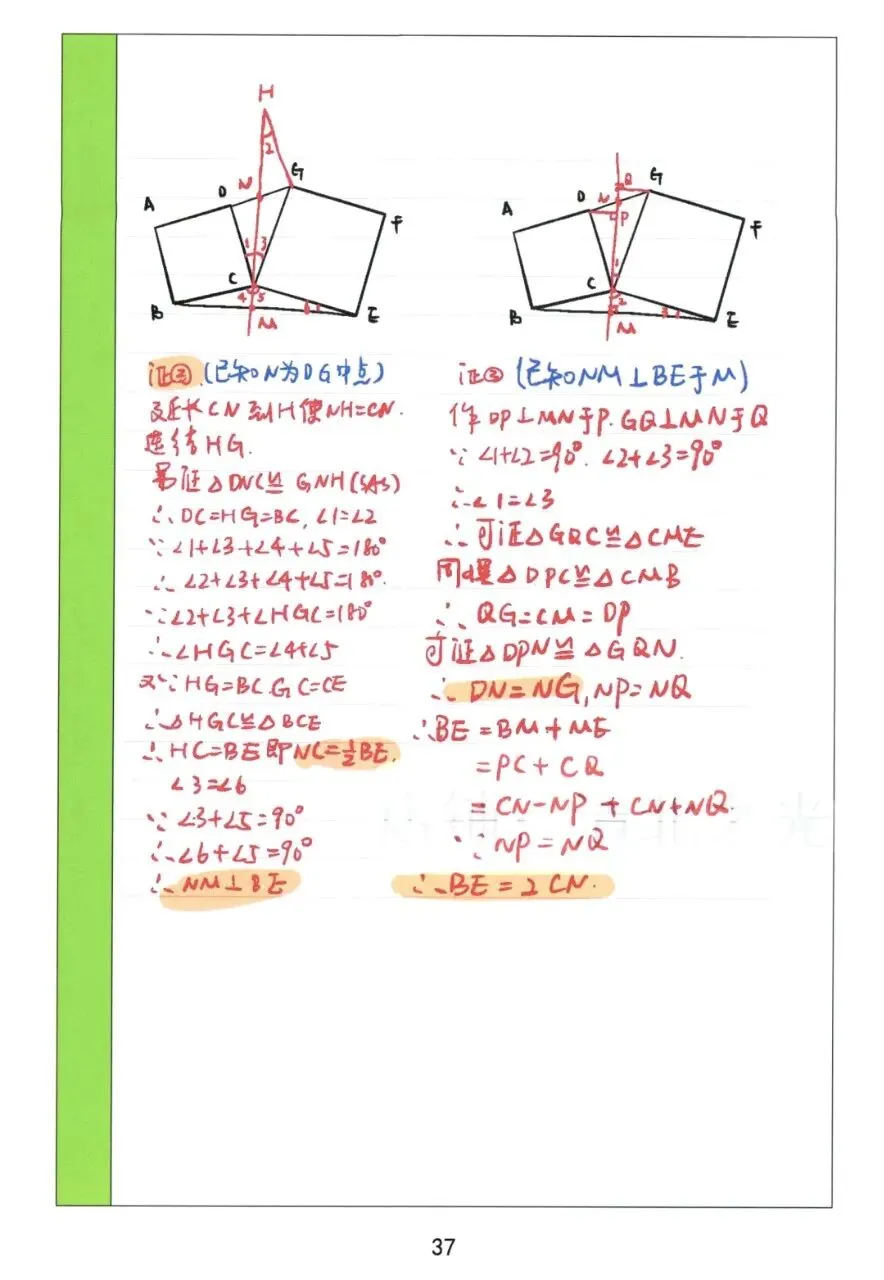 H
2
N
G
D
A
F
1
3
C
4
5
B
M
6
E
Q
G
D
N
A
P
F
1
C
2
B
M
3
E
证③(已知N为DG中点)
延长CN到H使NH=CN.
连结HG.
易证△DNC≌GNH(SAS)
∴DC=HG=BC,∠1=∠2
∵∠1+∠3+∠4+∠5=180°
∴∠2+∠3+∠4+∠5=180°
∵∠2+∠3+∠HGC=180°
∴∠HGC=∠4+∠5
又∵HG=BC.GC=CE
∴△HGC≌△BCE
∴HC=BE即NC=½BE.
∠3=∠6
∵∠3+∠5=90°
∴∠6+∠5=90°
∴NM⊥BE
证②(已知NM⊥BE于M)
作DP⊥MN于P.GQ⊥MN于Q
∵∠1+∠2=90°.∠2+∠3=90°
∴∠1=∠3
∴可证△GQC≌△CME
同理△DPC≌△CMB
∴QG=CM=DP
可证△DPN≌△GQN.
∴DN=NG,NP=NQ
∴BE=BM+ME
=PC+CQ
=CN-NP+CN+NQ.
∵NP=NQ
∴BE=2CN.
37